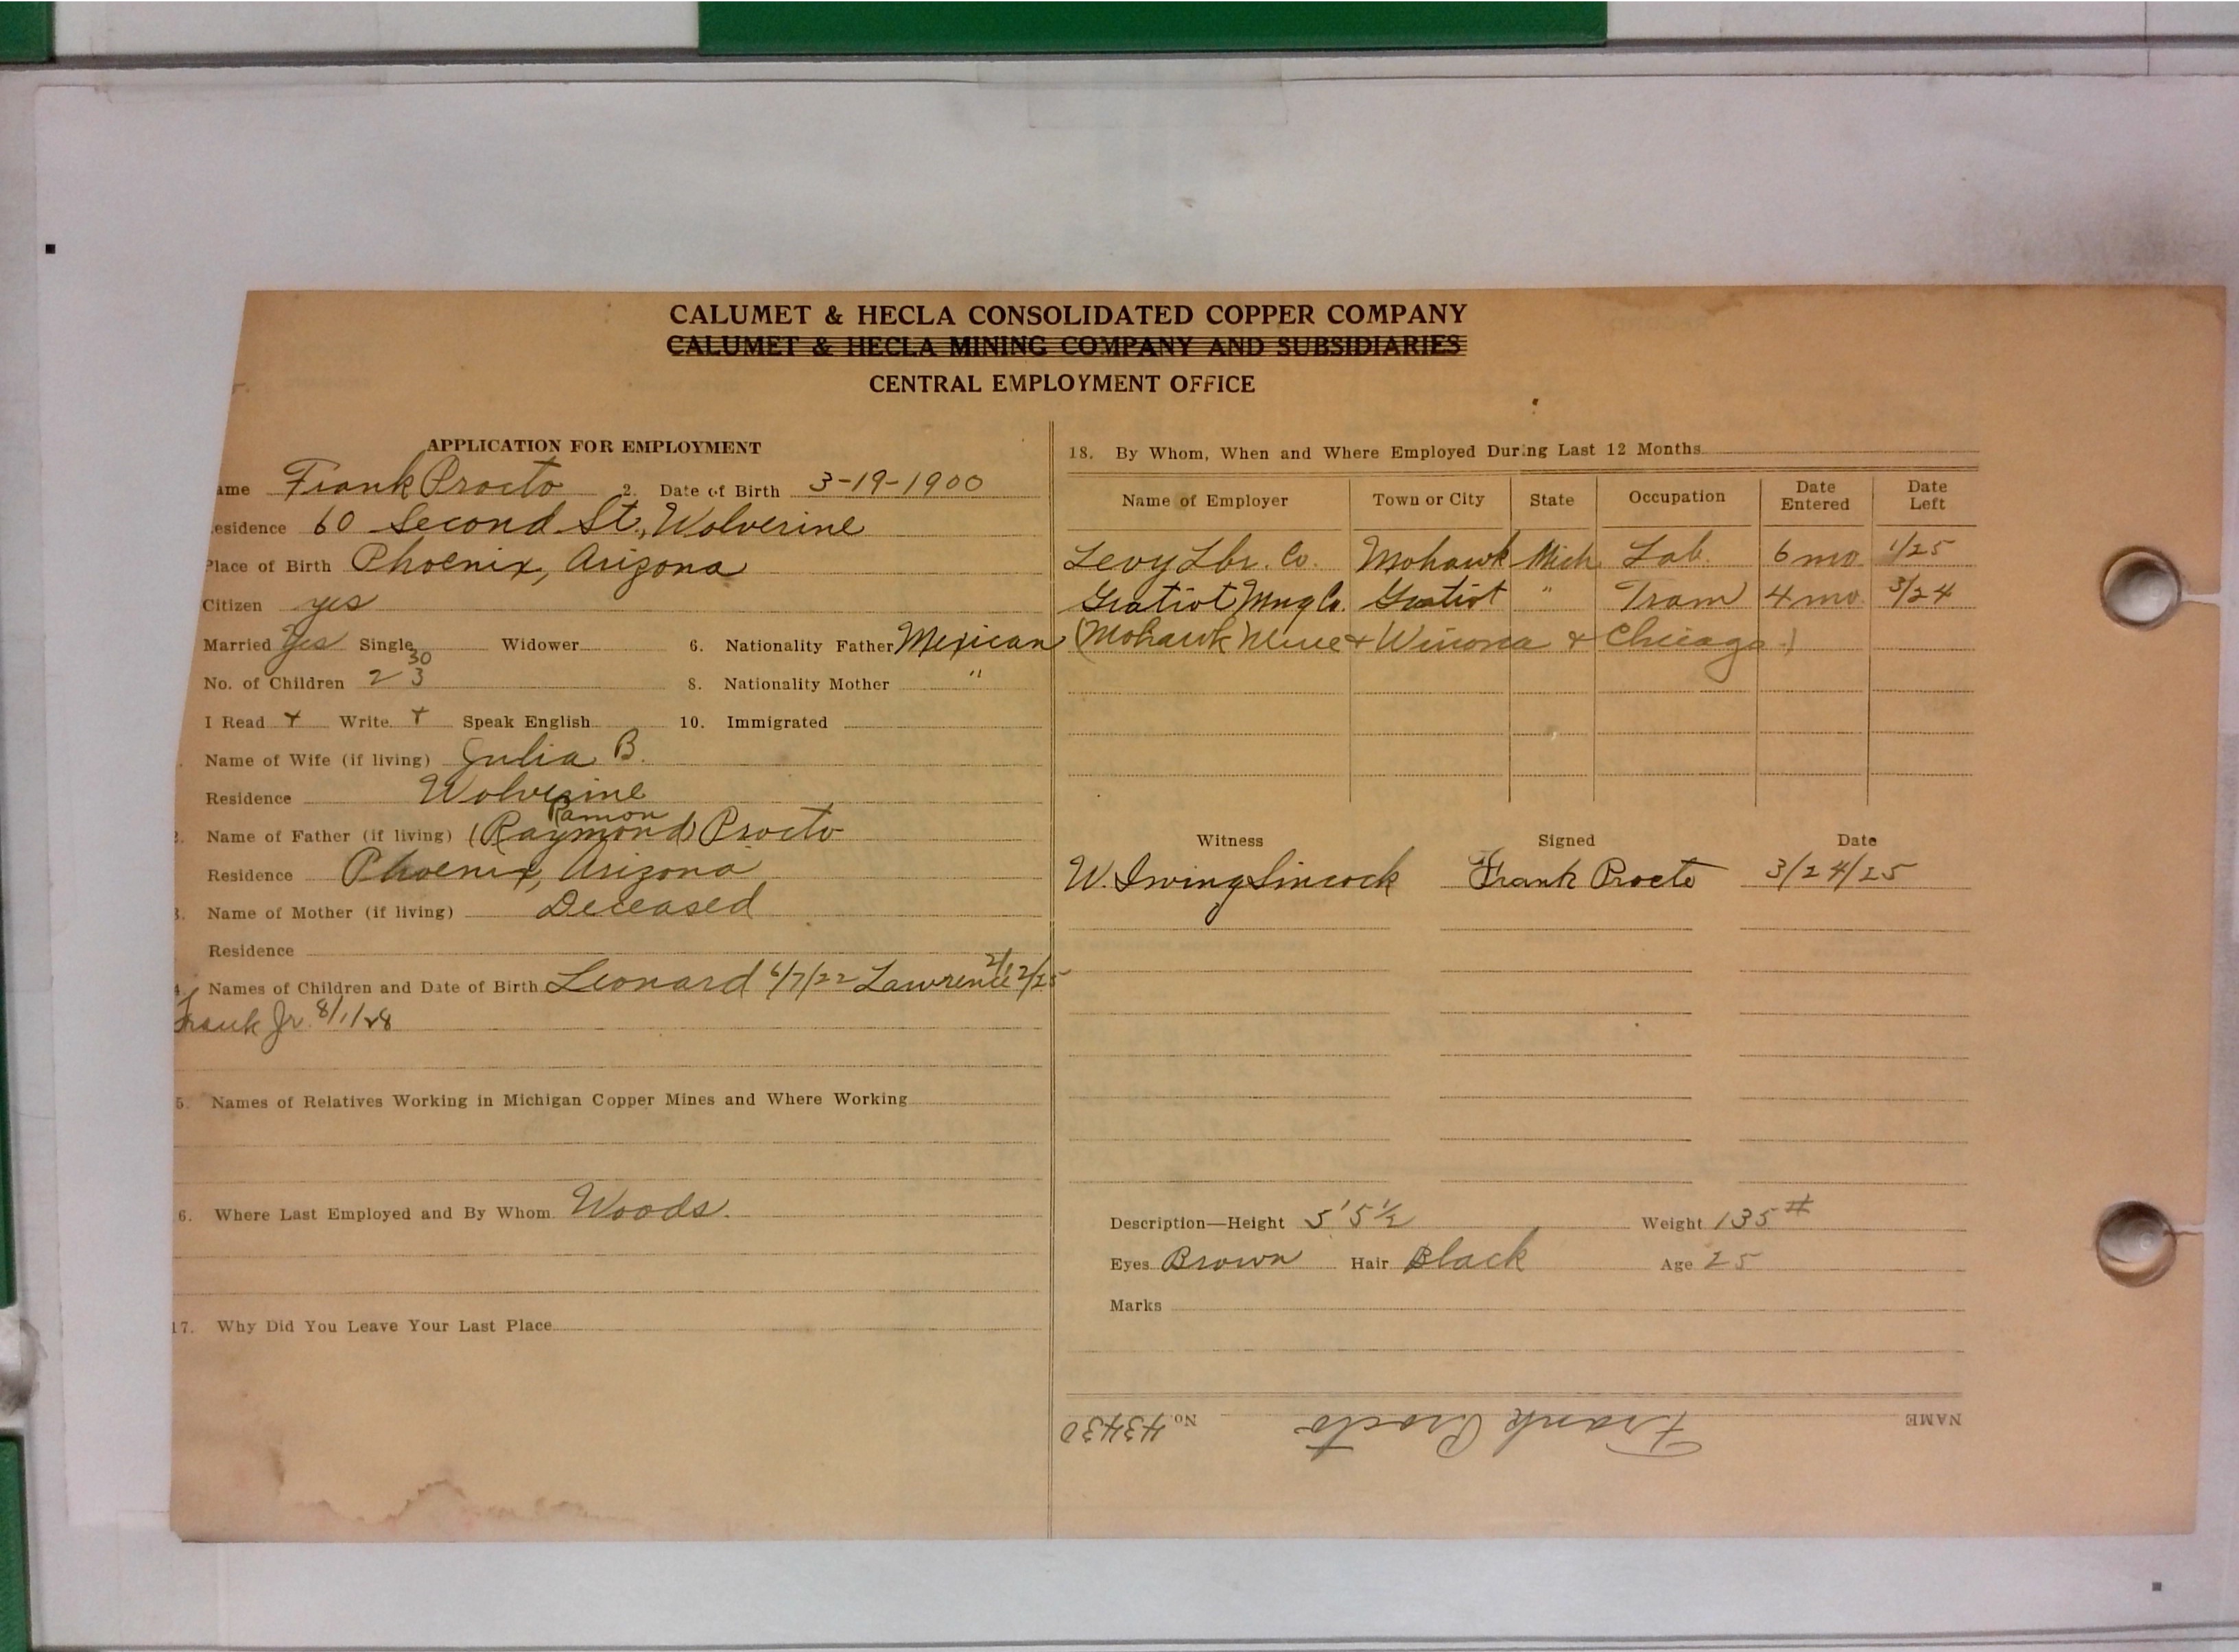 CALUMET & HECLA CONSOLIDATED COPPER COMPANY
CALUMET & HECLA MINING COMPANY AND SUBSIDIARIES
CENTRAL EMPLOYMENT OFFICE
APPLICATION FOR EMPLOYMENT
ame Frank Procto 2. Date of Birth 3-19-1900
esidence 60 Second St., Wolverine
Place of Birth Phoenix, Arizona
Citizen yes
Married Yes Single Widower 6. Nationality Father Mexican
30
No. of Children 2 3 8. Nationality Mother "
I Read + Write + Speak English 10. Immigrated
Name of Wife (if living) Julia B.
Residence Wolverine
Ramon
2. Name of Father (if living) (Raymond) Procto
Residence Phoenix, Arizona
3. Name of Mother (if living) Deceased
Residence
4. Names of Children and Date of Birth Leonard 6/7/22 Lawrence 2/12/25
Frank Jr. 8/1/28
5. Names of Relatives Working in Michigan Copper Mines and Where Working
6. Where Last Employed and By Whom Woods.
17. Why Did You Leave Your Last Place
18. By Whom, When and Where Employed During Last 12 Months
Name of Employer Town or City State Occupation Date Entered Date Left
Levy Lbr. Co. Mohawk Mich. Lab. 6 mo 1/25
Gratiot Mng Co. Gratiot " Tram 4 mo 3/24
(Mohawk Mine + Winona + Chicago.)
Witness Signed Date
W. Irving Lincock Frank Procto 3/24/25
Description—Height 5' 5 1/2 Weight 135 #
Eyes Brown Hair Black Age 25
Marks
NAME Frank Procto No. 43430